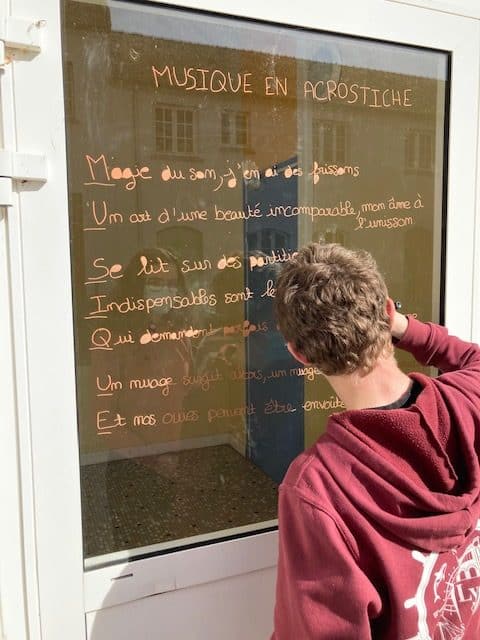 MUSIQUE EN ACROSTICHE
Magie du son, j'en ai des frissons
Un art d'une beauté incomparable, mon âme à
l'unisson
Se lit sur des
Indispensables sont
Qui demandent parfois
Un nuage surgit alors, un nuage
Et nos ouïes peuvent être
Ly